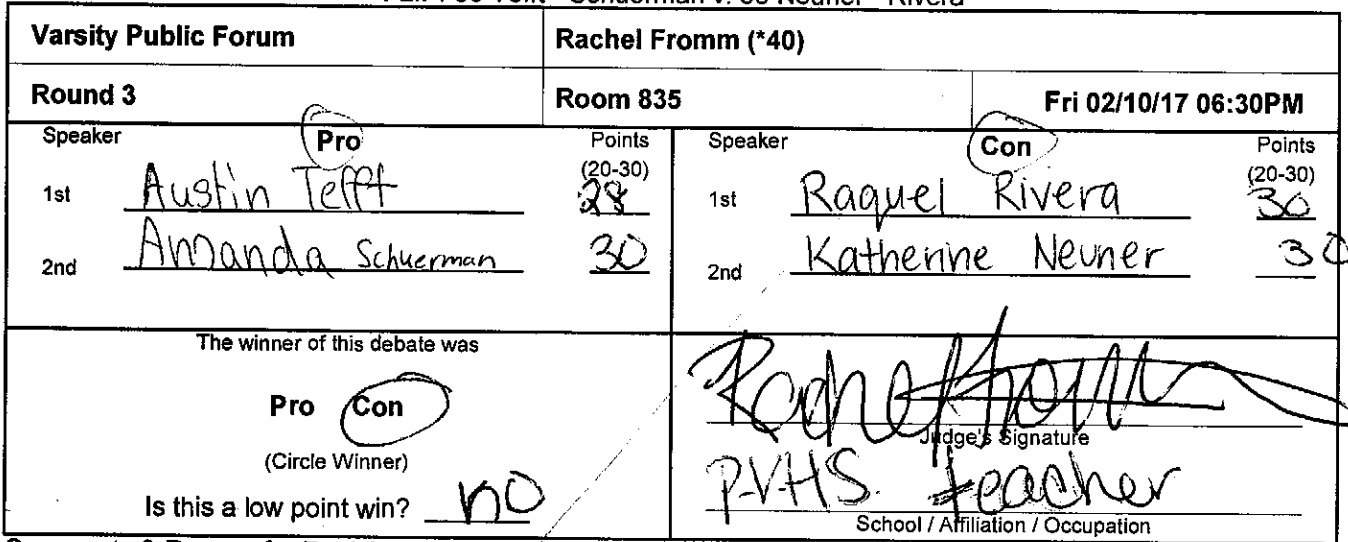 Schuerman v. Neuner - Rivera
Varsity Public Forum
Rachel Fromm (*40)
Round 3
Room 835
Fri 02/10/17 06:30PM
Speaker Pro Points
(20-30)
1st Austin Tefft 28
2nd Amanda Schuerman 30
Speaker Con Points
(20-30)
1st Raquel Rivera 30
2nd Katherine Neuner 30
The winner of this debate was
Pro Con
(Circle Winner)
Is this a low point win? no
Rachel Fromm
Judge's Signature
PVHS teacher
School / Affiliation / Occupation